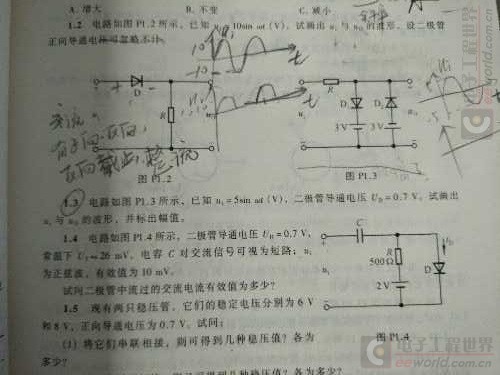 A. 增大 B. 不变 C. 减小
1.2 电路如图 P1.2 所示，已知 uᵢ = 10sin ωt (V)，试画出 uᵢ 与 uₒ 的波形。设二极管
正向导通电压可忽略不计。
10
-10
t
D
R
交流:
有正向、反向,
反向截止,
图 P1.2
R
D₁
D₂
3 V
3 V
uᵢ
t
图 P1.3
1.3 电路如图 P1.3 所示，已知 uᵢ = 5sin ωt (V)，二极管导通电压 U_D = 0.7 V。试画出
uᵢ 与 uₒ 的波形，并标出幅值。
1.4 电路如图 P1.4 所示，二极管导通电压 U_D = 0.7 V，
常温下 U_T ≈ 26 mV，电容 C 对交流信号可视为短路；uᵢ
为正弦波，有效值为 10 mV。
试问二极管中流过的交流电流有效值为多少？
C
uᵢ
R
500 Ω
2 V
D
i_D
图 P1.4
1.5 现有两只稳压管，它们的稳定电压分别为 6 V
和 8 V，正向导通电压为 0.7 V。试问：
(1) 将它们串联相接，则可得到几种稳压值？各为
多少？
几种稳压值？各为多少？
电子工程世界
eeworld.com.cn